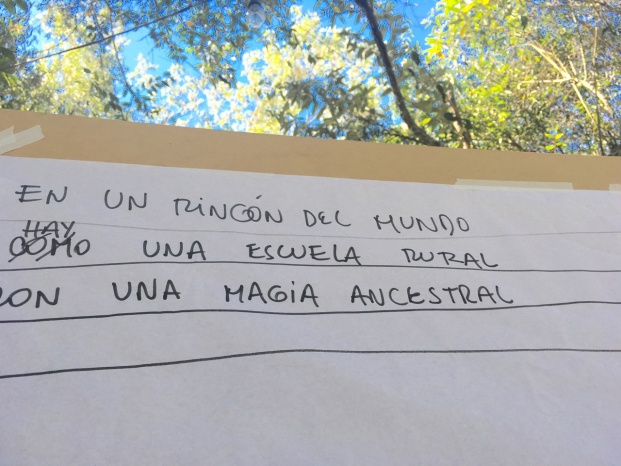 EN UN RINCÓN DEL MUNDO
HAY
COMO UNA ESCUELA RURAL
CON UNA MAGIA ANCESTRAL